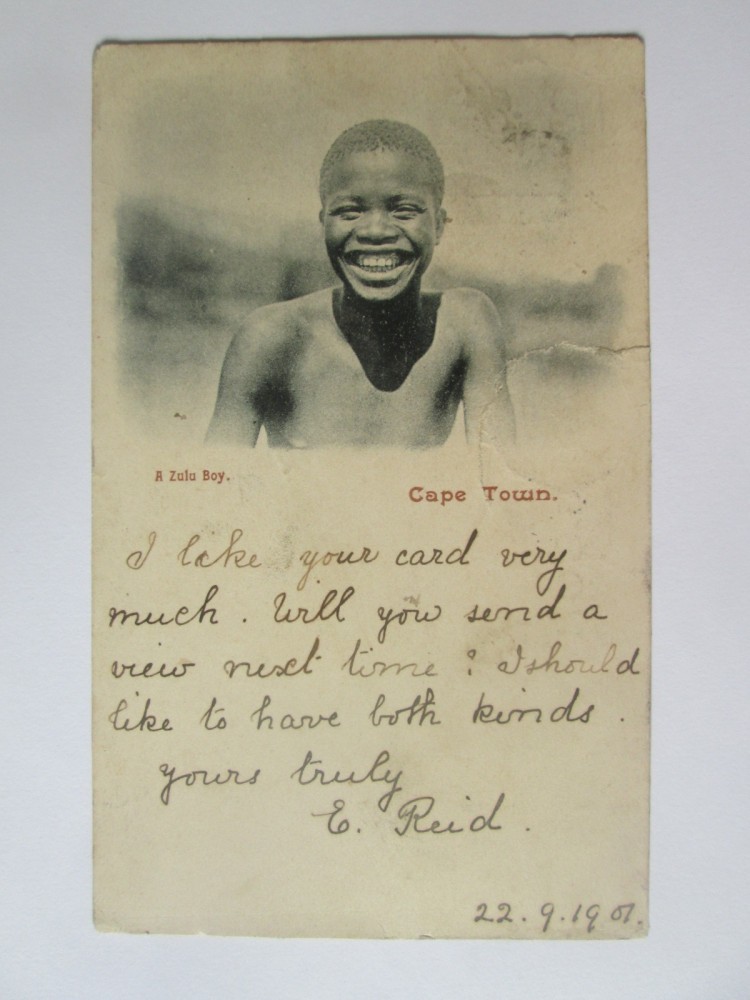 A Zulu Boy.
Cape Town.
I like your card very
much. Will you send a
view next time? I should
like to have both kinds.
yours truly
E. Reid.
22.9.1901.